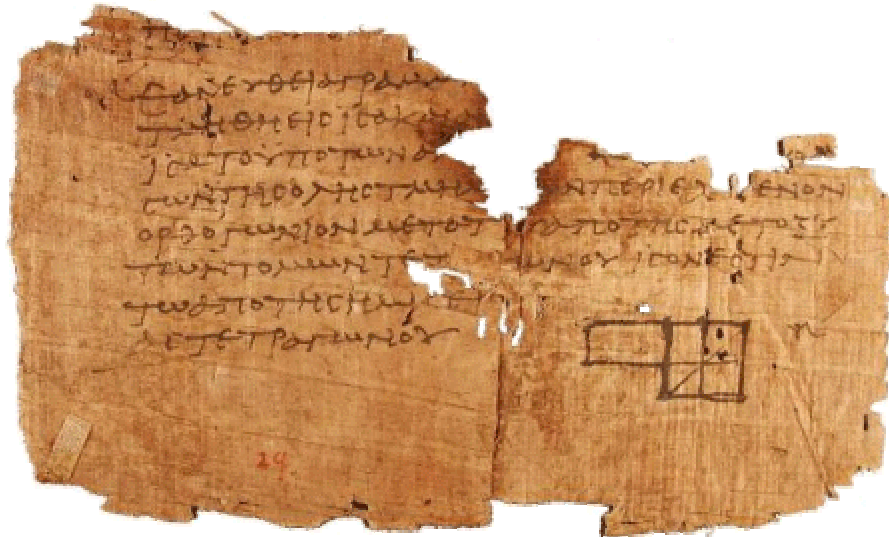 ΕΑΝΕΥΘΕΙΑΓΡΑΜΜ
ΤΜΗΘΗΕΙΣΙΣΑΚΑΙ
ΙΣΑΤΟΥΠΟΤΩΝΑ
ΣΩΝΤΗΣΟΛΗΣΤΜΗΜ ΩΝΠΕΡΙΕΧ ΕΝΟΝ
ΟΡΘΟΓΩΝΙΟΝΜΕΤΟΤ ΑΠΟΤΗΣΜΕΤΟΞΥ
ΤΩΝΤΟΜΩΝΤΕΤ ΩΝΟΥΙΣΟΝΕΣΤΙΝ
ΤΩΑΠΟΤΗΣΗΜΙΣΕΙ
ΑΣΤΕΤΡΑΓΩΝΟΥ
24.